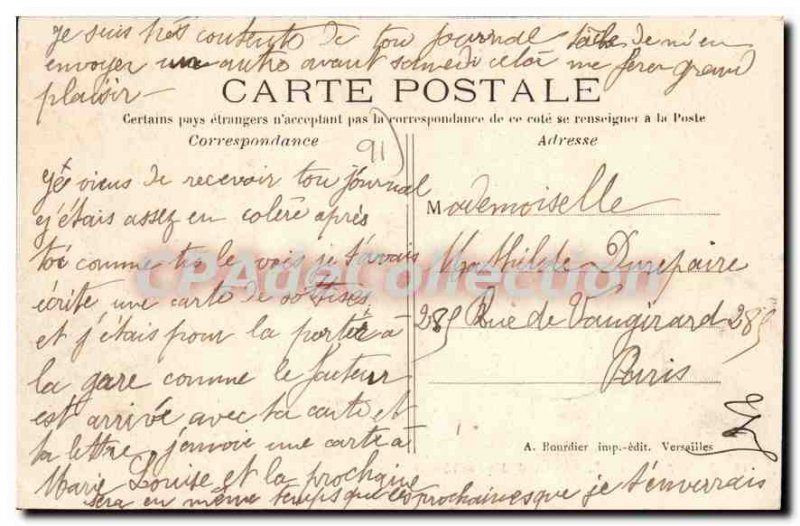 Je suis très contente de ton journal tâche de m'en
envoyer un autre avant samedi celà me ferer grand
plaisir —
CARTE POSTALE
Certains pays étrangers n'acceptant pas la correspondance de ce coté se renseigner a la Poste
Correspondance
Adresse
91
Je viens de recevoir ton journal
j'étais assez en colère après
toi comme tu le vois je t'avais
écrite une carte de sottises
et j'étais pour la porter à
la gare comme le facteur
est arrivé avec ta carte et
ta lettre, j'envoie une carte à
Marie Louise et la prochaine
sera en même temps que les prochaines que je t'enverrais
Mademoiselle
Mathilde Durepaire
285 Rue de Vaugirard 285
Paris
A. Bourdier imp.-édit. Versailles
CPAdeCollection